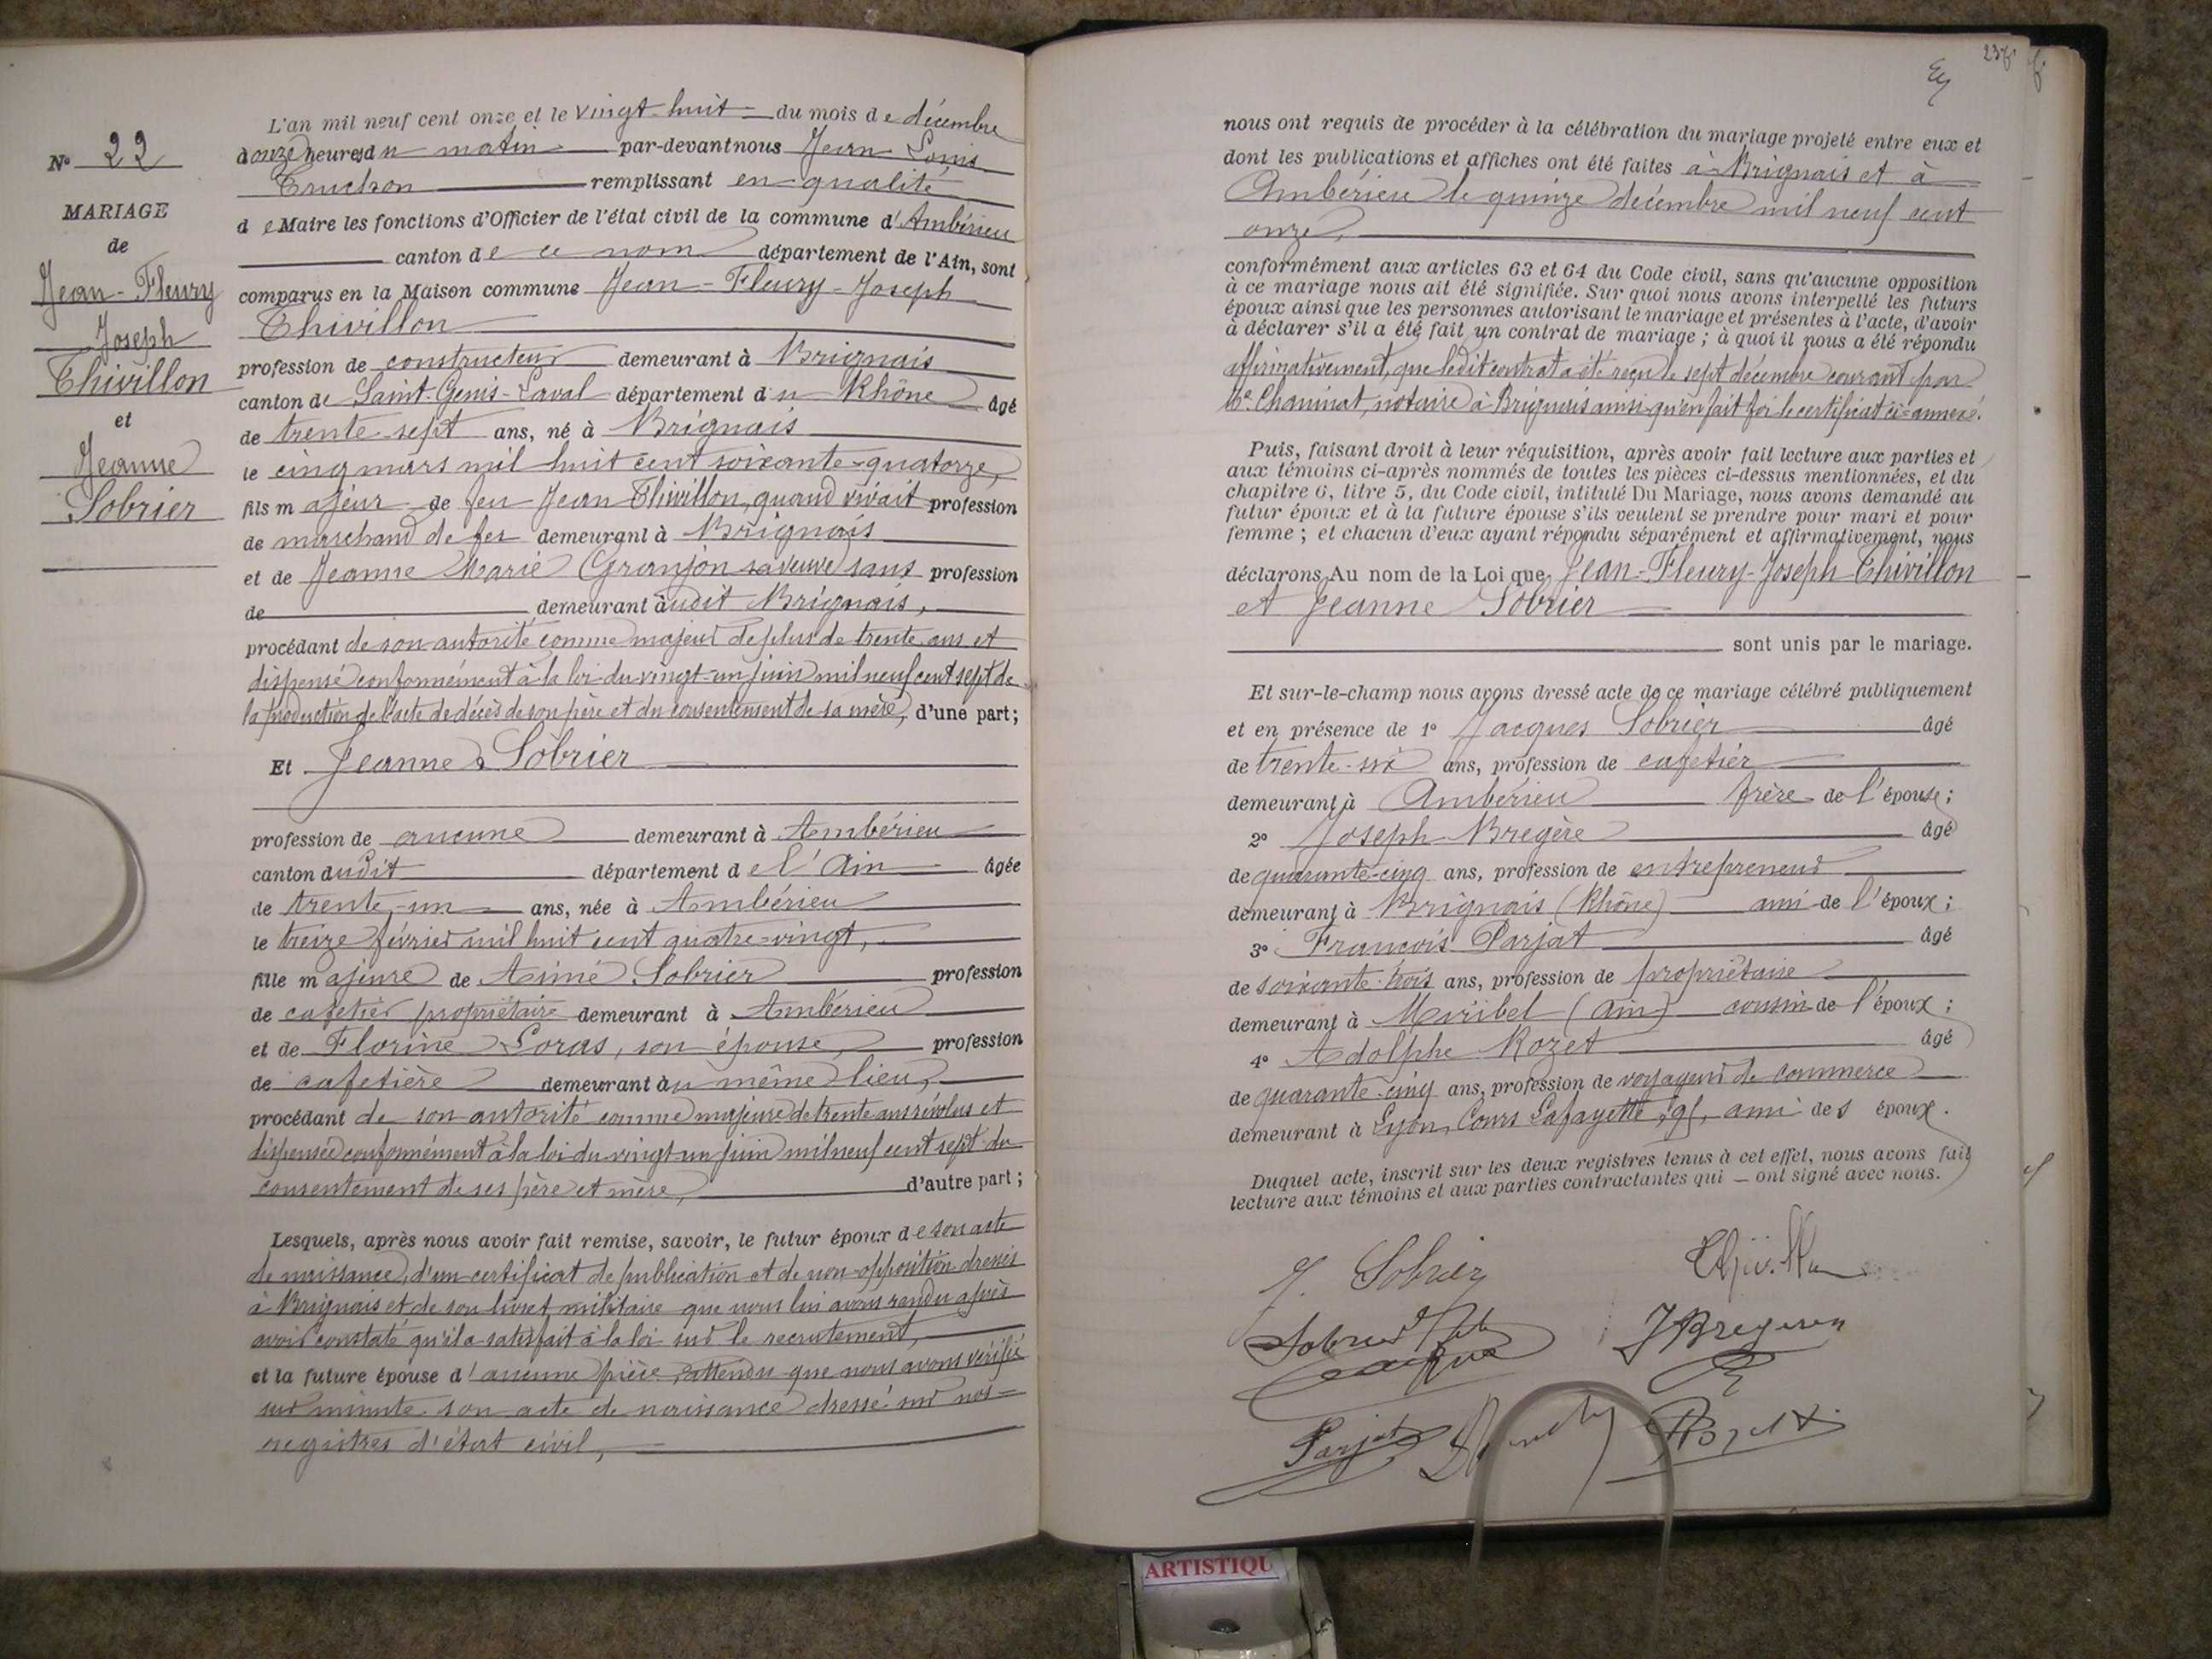 N° 22
MARIAGE
de
Jean-Fleury
Joseph
Thivillon
et
Jeanne
Sobrier
L'an mil neuf cent onze et le vingt-huit du mois de décembre
à onze heures du matin par-devant nous Jean Louis
Truchon remplissant en qualité
de Maire les fonctions d'Officier de l'état civil de la commune d'Ambérieu
canton de ce nom département de l'Ain, sont
comparus en la Maison commune Jean-Fleury-Joseph
Thivillon
profession de constructeur demeurant à Brignais
canton de Saint-Genis-Laval département du Rhône âgé
de trente-sept ans, né à Brignais
le cinq mars mil huit cent soixante-quatorze,
fils majeur de feu Jean Thivillon, quand vivait profession
de marchand de fer demeurant à Brignais
et de Jeanne Marie Granjon sa veuve sans profession
de demeurant audit Brignais,
procédant de son autorité comme majeur de plus de trente ans et
dispensé conformément à la loi du vingt-un juin mil neuf cent sept de
la production de l'acte de décès de son père et du consentement de sa mère, d'une part;
Et Jeanne Sobrier
profession de aucune demeurant à Ambérieu
canton dudit département de l'Ain âgée
de trente-un ans, née à Ambérieu
le treize février mil huit cent quatre-vingt,
fille majeure de Aimé Sobrier profession
de cafetier propriétaire demeurant à Ambérieu
et de Florine Loras, son épouse, profession
de cafetière demeurant au même lieu,
procédant de son autorité comme majeure de trente ans révolus et
dispensée conformément à la loi du vingt-un juin mil neuf cent sept du
consentement de ses père et mère, d'autre part;
Lesquels, après nous avoir fait remise, savoir, le futur époux de son acte
de naissance, d'un certificat de publication et de non-opposition dressés
à Brignais et de son livret militaire que nous lui avons rendu après
avoir constaté qu'il a satisfait à la loi sur le recrutement,
et la future épouse d'aucune pièce, attendu que nous avons vérifié
sur minute son acte de naissance dressé sur nos
registres d'état civil,
237
nous ont requis de procéder à la célébration du mariage projeté entre eux et
dont les publications et affiches ont été faites à Brignais et à
Ambérieu le quinze décembre mil neuf cent
onze,
conformément aux articles 63 et 64 du Code civil, sans qu'aucune opposition
à ce mariage nous ait été signifiée. Sur quoi nous avons interpellé les futurs
époux ainsi que les personnes autorisant le mariage et présentes à l'acte, d'avoir
à déclarer s'il a été fait un contrat de mariage; à quoi il nous a été répondu
affirmativement, que ledit contrat a été reçu le sept décembre courant par
Me Chaninat, notaire à Brignais ainsi qu'en fait foi le certificat ci-annexé.
Puis, faisant droit à leur réquisition, après avoir fait lecture aux parties et
aux témoins ci-après nommés de toutes les pièces ci-dessus mentionnées, et du
chapitre 6, titre 5, du Code civil, intitulé Du Mariage, nous avons demandé au
futur époux et à la future épouse s'ils veulent se prendre pour mari et pour
femme; et chacun d'eux ayant répondu séparément et affirmativement, nous
déclarons Au nom de la Loi que Jean-Fleury-Joseph Thivillon
et Jeanne Sobrier
sont unis par le mariage.
Et sur-le-champ nous avons dressé acte de ce mariage célébré publiquement
et en présence de 1° Jacques Sobrier âgé
de trente-six ans, profession de cafetier
demeurant à Ambérieu frère de l'épouse;
2° Joseph Bregère âgé
de quarante-cinq ans, profession de entrepreneur
demeurant à Brignais (Rhône) ami de l'époux;
3° François Parjat âgé
de soixante-trois ans, profession de propriétaire
demeurant à Miribel (Ain) cousin de l'époux;
4° Adolphe Rozet âgé
de quarante-cinq ans, profession de voyageur de commerce
demeurant à Lyon, Cours Lafayette, 91, ami des époux.
Duquel acte, inscrit sur les deux registres tenus à cet effet, nous avons fait
lecture aux témoins et aux parties contractantes qui ont signé avec nous.
J. Sobrier
Thivillon
Sobrier fils
Jacques
J Bregere
Parjat
Rozet
ARTISTIQU